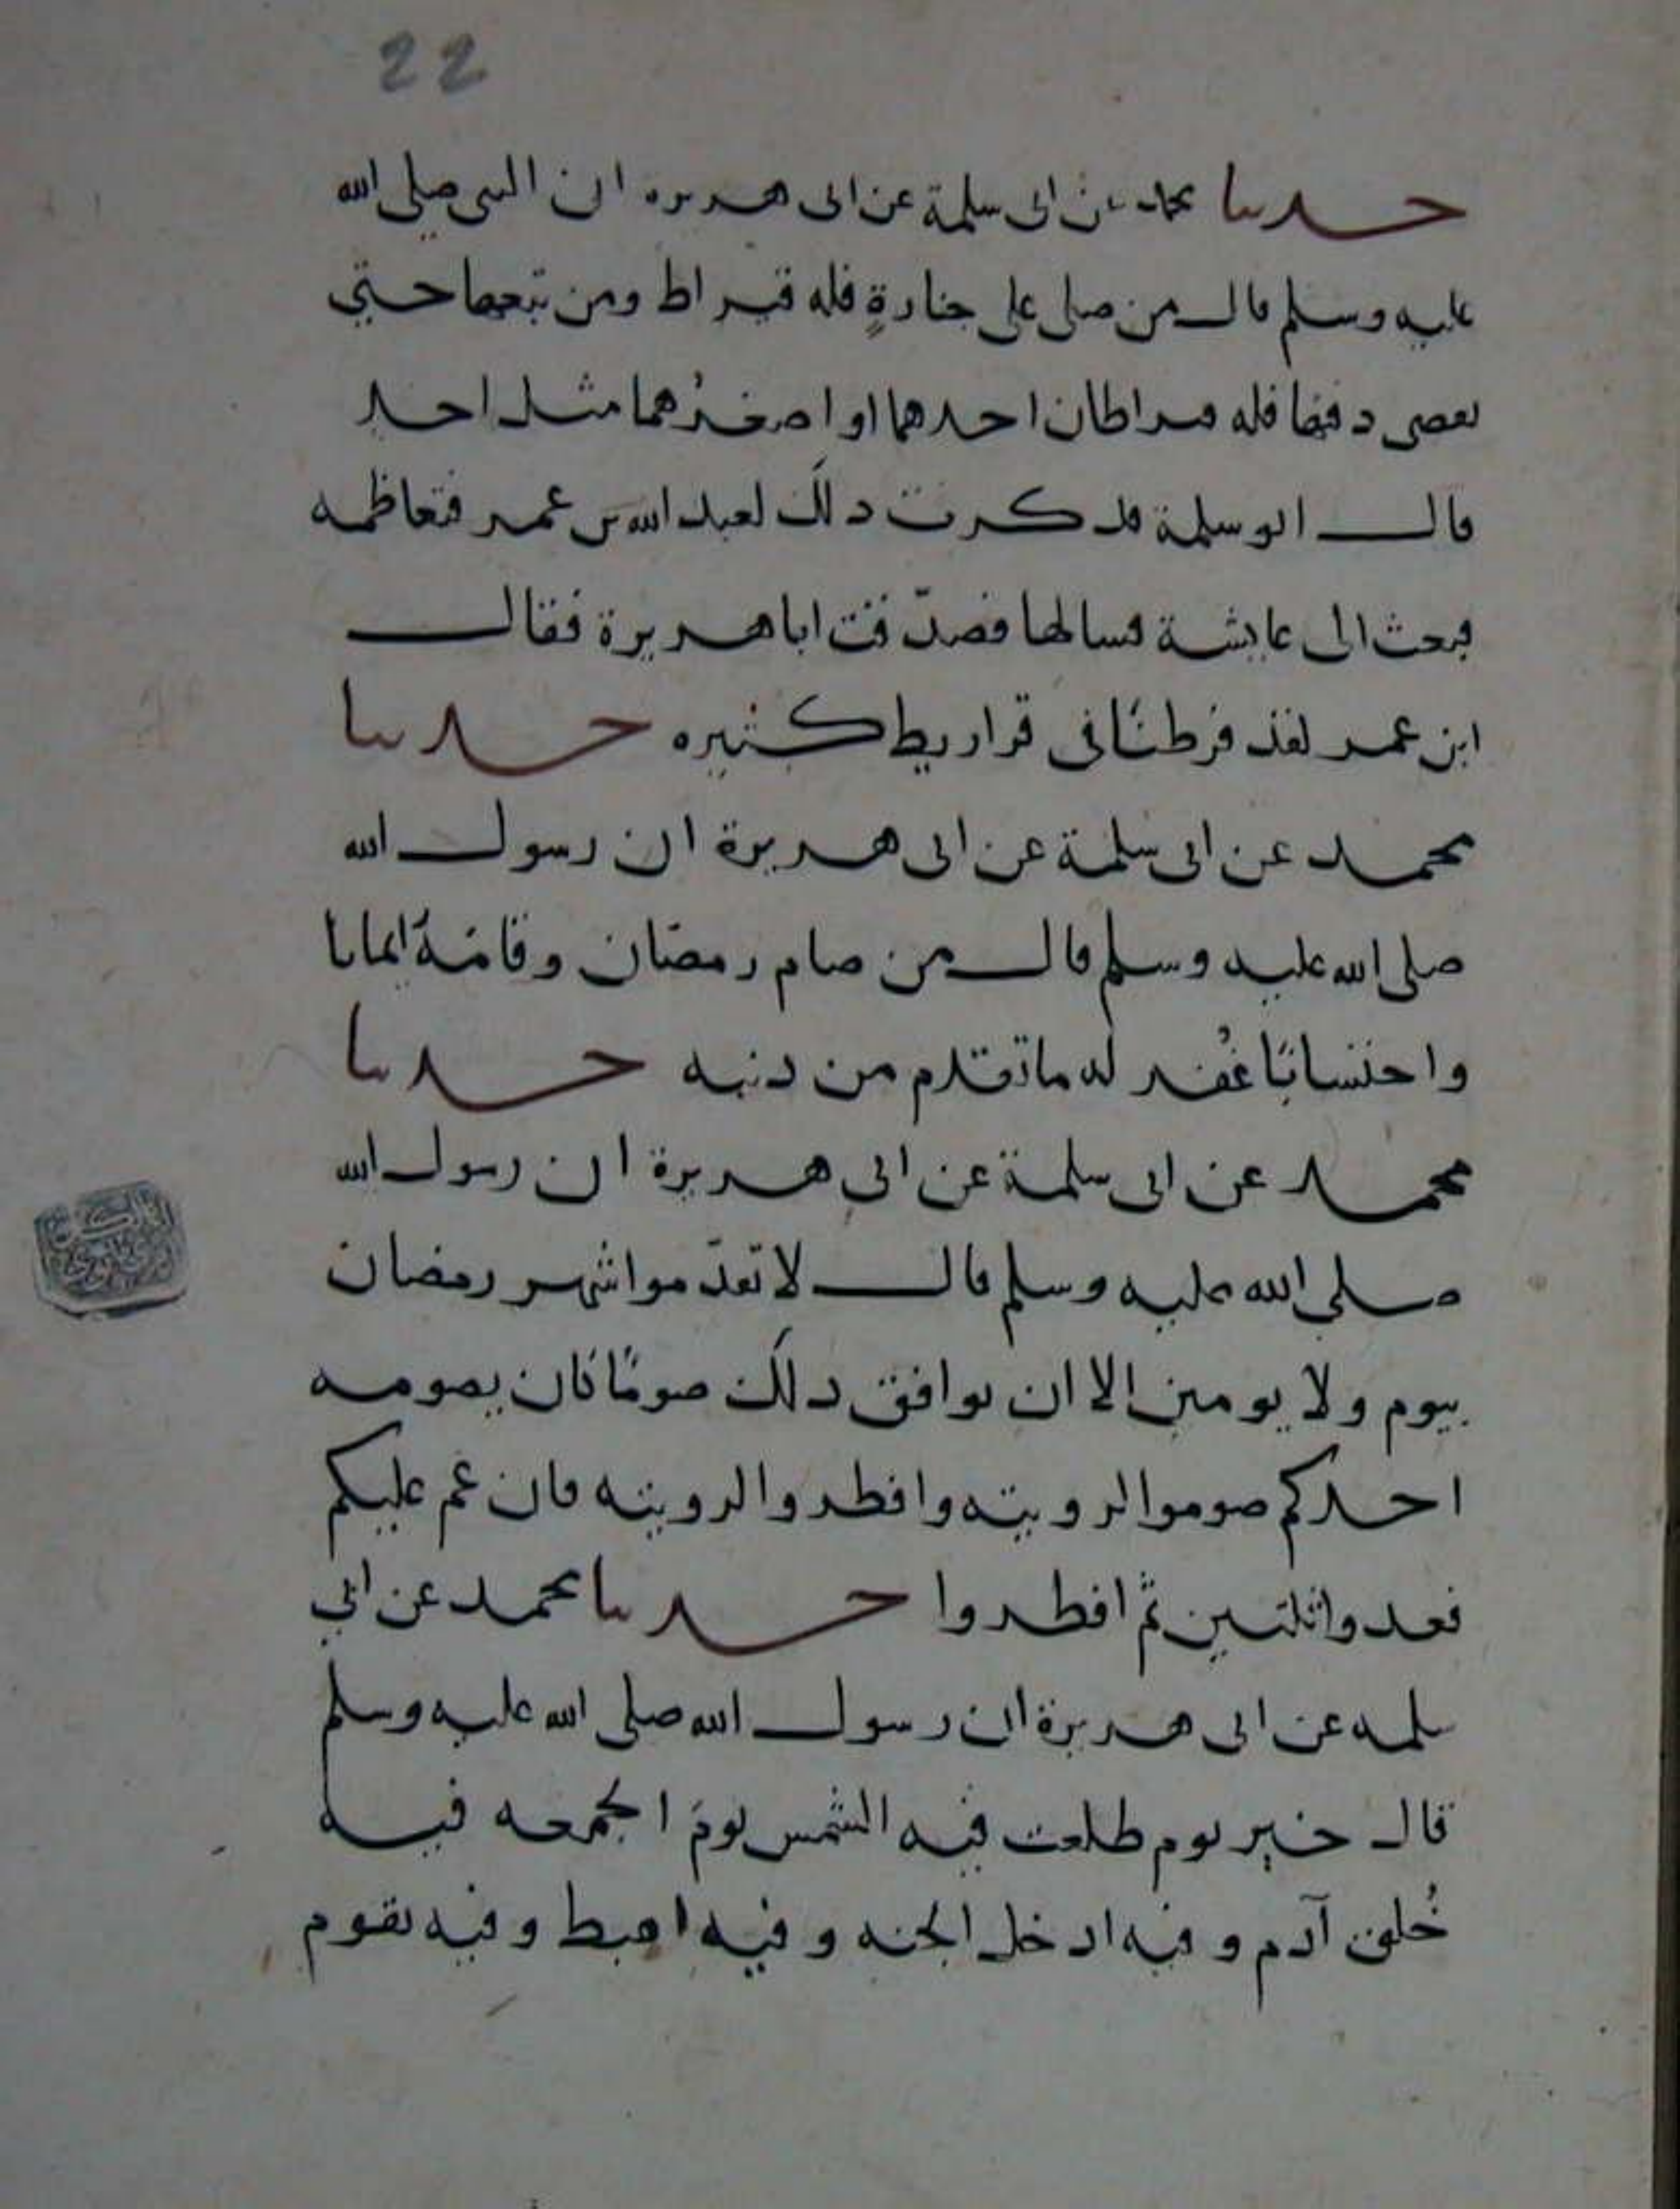 22
حدثنا محمد عن ابى سلمة عن ابى هريره ان النبى صلى الله
عليه وسلم قال من صلى على جنازةٍ فله قيراط ومن تبعها حتي
يقضى دفنها فله قيراطان احدهما او اصغرُهما مثل احد
قال ابو سلمة فذكرت ذلك لعبد الله بن عمر فتعاظمه
فبعث الى عايشة فسالها فصدّقت ابا هريرة فقال
ابن عمر لقد فرطنَا فى قراريط كثيره حدثنا
محمد عن ابى سلمة عن ابى هريرة ان رسول الله
صلى الله عليه وسلم قال من صام رمضان وقامَهُ ايمانا
واحتسابًا غُفر له ما تقدم من ذنبه حدثنا
محمد عن ابى سلمة عن ابى هريرة ان رسول الله
صلى الله عليه وسلم قال لا تقدّموا شهر رمضان
بيوم ولا يومين الا ان يوافق ذلك صومًا كان يصومه
احدكم صوموا لرويته وافطروا لرويته فان غم عليكم
فعدوا ثلثين ثم افطروا حدثنا محمد عن ابي
سلمه عن ابى هريرة ان رسول الله صلى الله عليه وسلم
قال خير يوم طلعت فيه الشمس يومَ الجمعه فيه
خُلق آدم وفيه ادخل الجنه وفيه اهبط وفيه تقوم